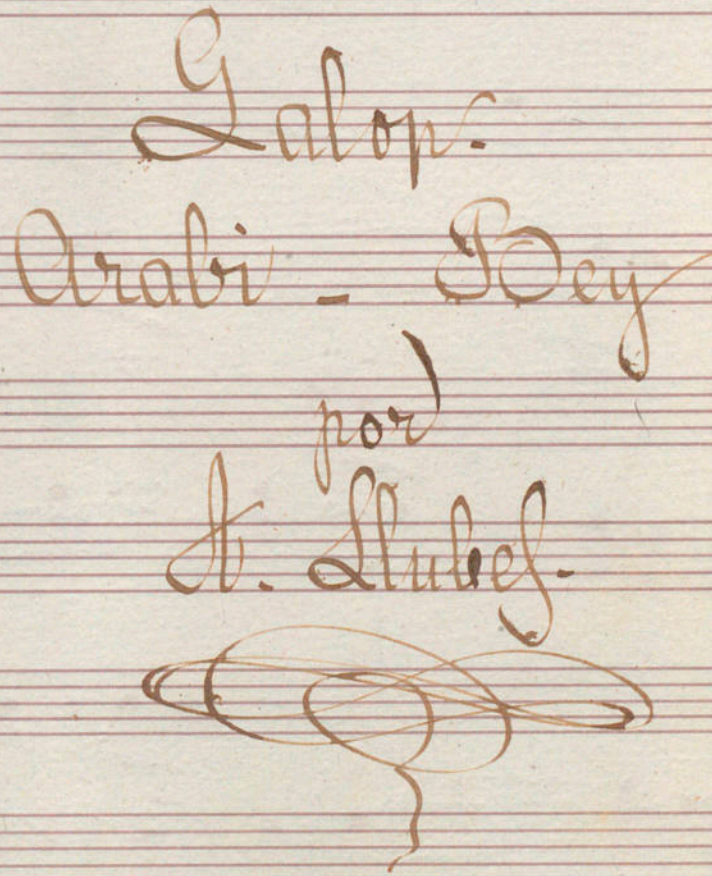 Galop.
Arabi - Bey
por
A. Llubes.